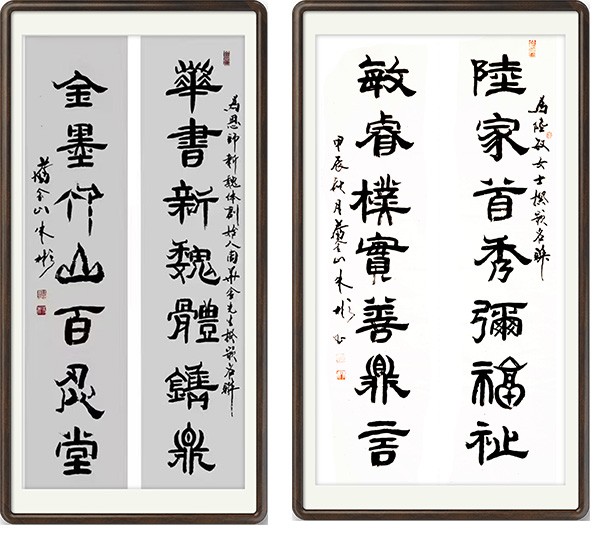 華書新魏體鐫鼎
為恩師新魏体創始人周華金先生撰嵌名聯
金墨仰山百忍堂
舊金山朱彬
陸家首秀彌福祉
為陸敏女士撰嵌名聯
敏睿樸實善鼎言
甲辰秋月舊金山朱彬书